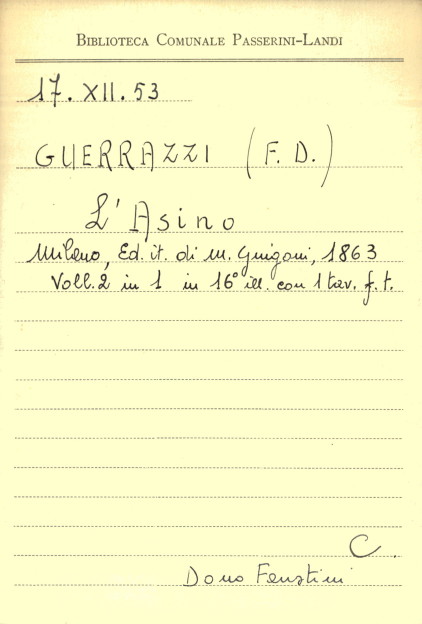 BIBLIOTECA COMUNALE PASSERINI-LANDI
17. XII. 53
GUERRAZZI (F. D.)
L'Asino
Milano, Ed. it. di M. Guigoni, 1863
Voll. 2 in 1 in 16° ill. con 1 tav. f. t.
C.
Dono Faustini